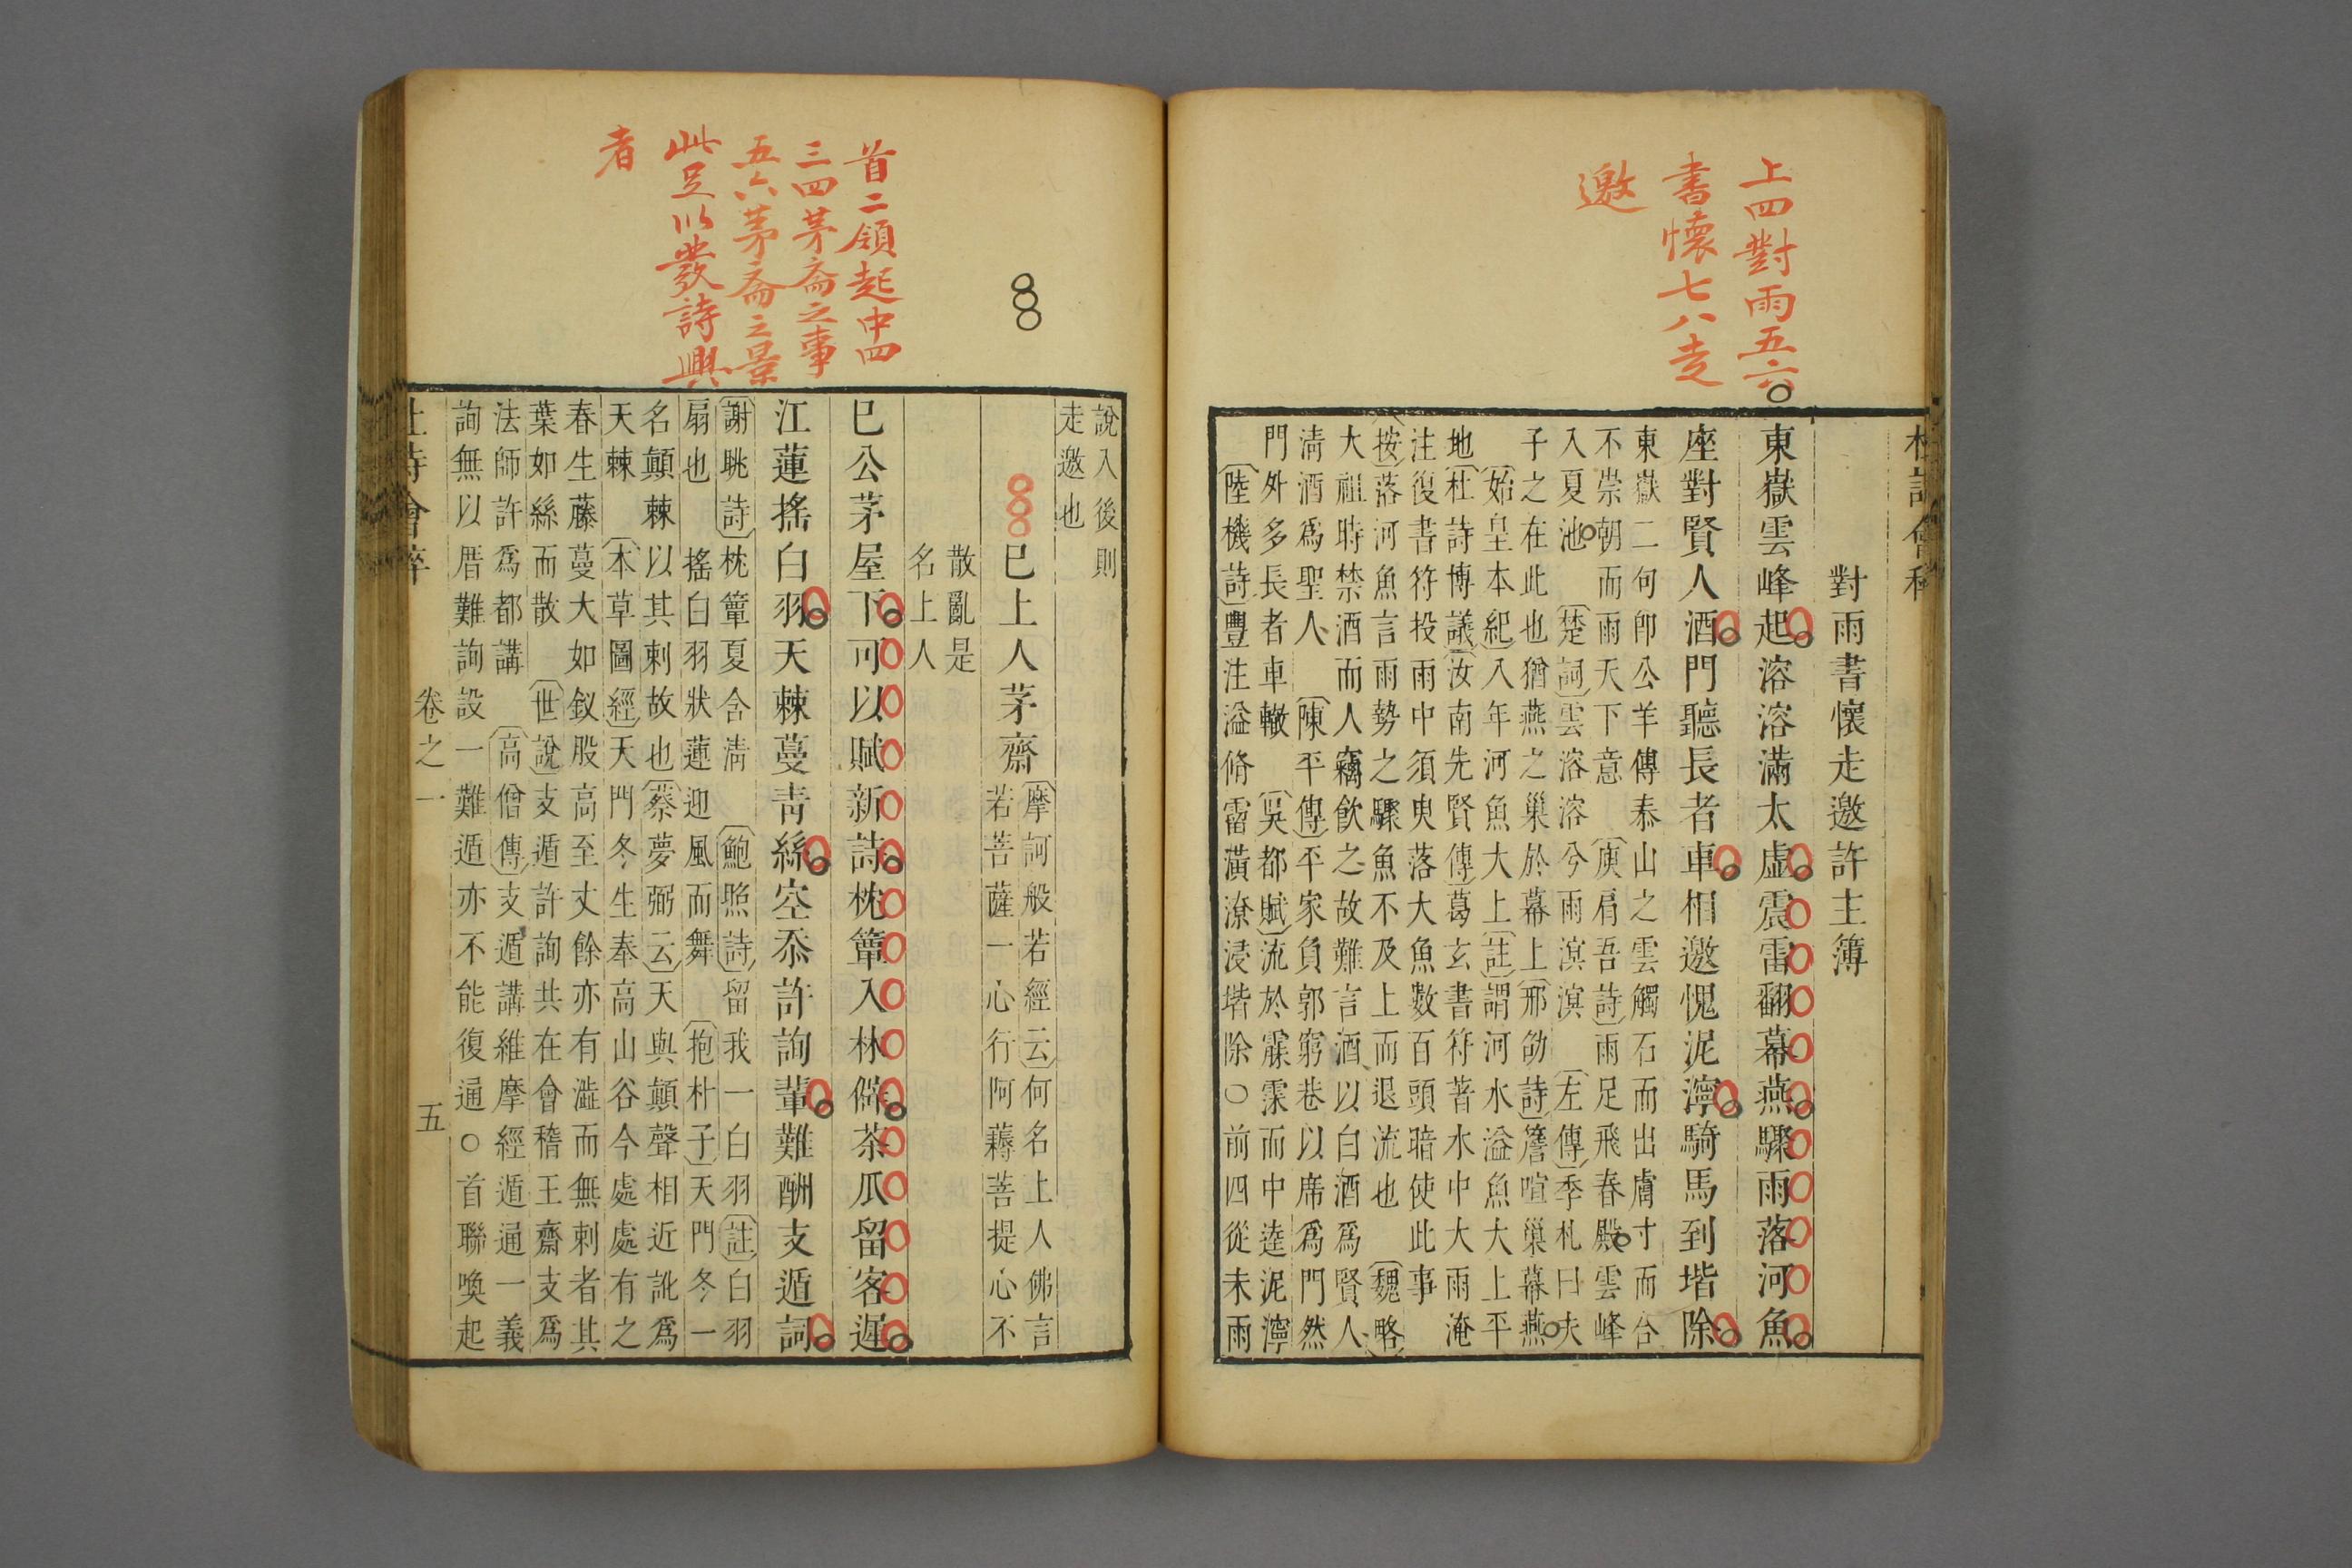 上四對雨五六
書懷七八走
邀
對雨書懷走邀許主簿
東嶽雲峰起溶溶滿太虛震雷翻幕燕驟雨落河魚
座對賢人酒門聽長者車相邀愧泥濘騎馬到堦除
東嶽二句卽公羊傳泰山之雲觸石而出膚寸而合
不崇朝而雨天下意 庾肩吾詩雨足飛春殿雲峰
入夏池 楚詞雲溶溶兮雨溟溟 左傳季札曰夫
子之在此也猶燕之巢於幕上邢劭詩簷喧巢幕燕
始皇本紀入年河魚大上註謂河水溢魚大上平
地杜詩博議汝南先賢傳葛玄書符著水中大雨淹
注復書符投雨中須臾落大魚數百頭暗使此事
按落河魚言雨勢之驟魚不及上而退流也 魏略
大祖時禁酒而人竊飲之故難言酒以白酒爲賢人
淸酒爲聖人 陳平傳平家負郭窮巷以席爲門然
門外多長者車轍 吳都賦流於霂霂而中逵泥濘
陸機詩豐注溢脩霤潢潦浸堦除○前四從未雨
首二領起中四
三四茅齋之事
五六茅齋之景
此足以發詩興
者
說入後則
走邀也
巳上人茅齋
摩訶般若經云何名上人佛言
若菩薩一心行阿耨菩提心不
散亂是
名上人
巳公茅屋下可以賦新詩枕簟入林僻茶瓜留客遲
江蓮搖白羽天棘蔓靑絲空忝許詢輩難酬支遁詞
謝眺詩枕簟夏含淸 鮑照詩留我一白羽註白羽
扇也 搖白羽狀蓮迎風而舞 抱朴子天門冬一
名顛棘以其刺故也蔡夢弼云天與顛聲相近訛爲
天棘 本草圖經天門冬生奉高山谷今處處有之
春生藤蔓大如釵股高至丈餘亦有澁而無刺者其
葉如絲而散 世說支遁許詢共在會稽王齋支爲
法師許爲都講 高僧傳支遁講維摩經遁通一義
詢無以厝難詢設一難遁亦不能復通○首聯喚起
卷之一 五